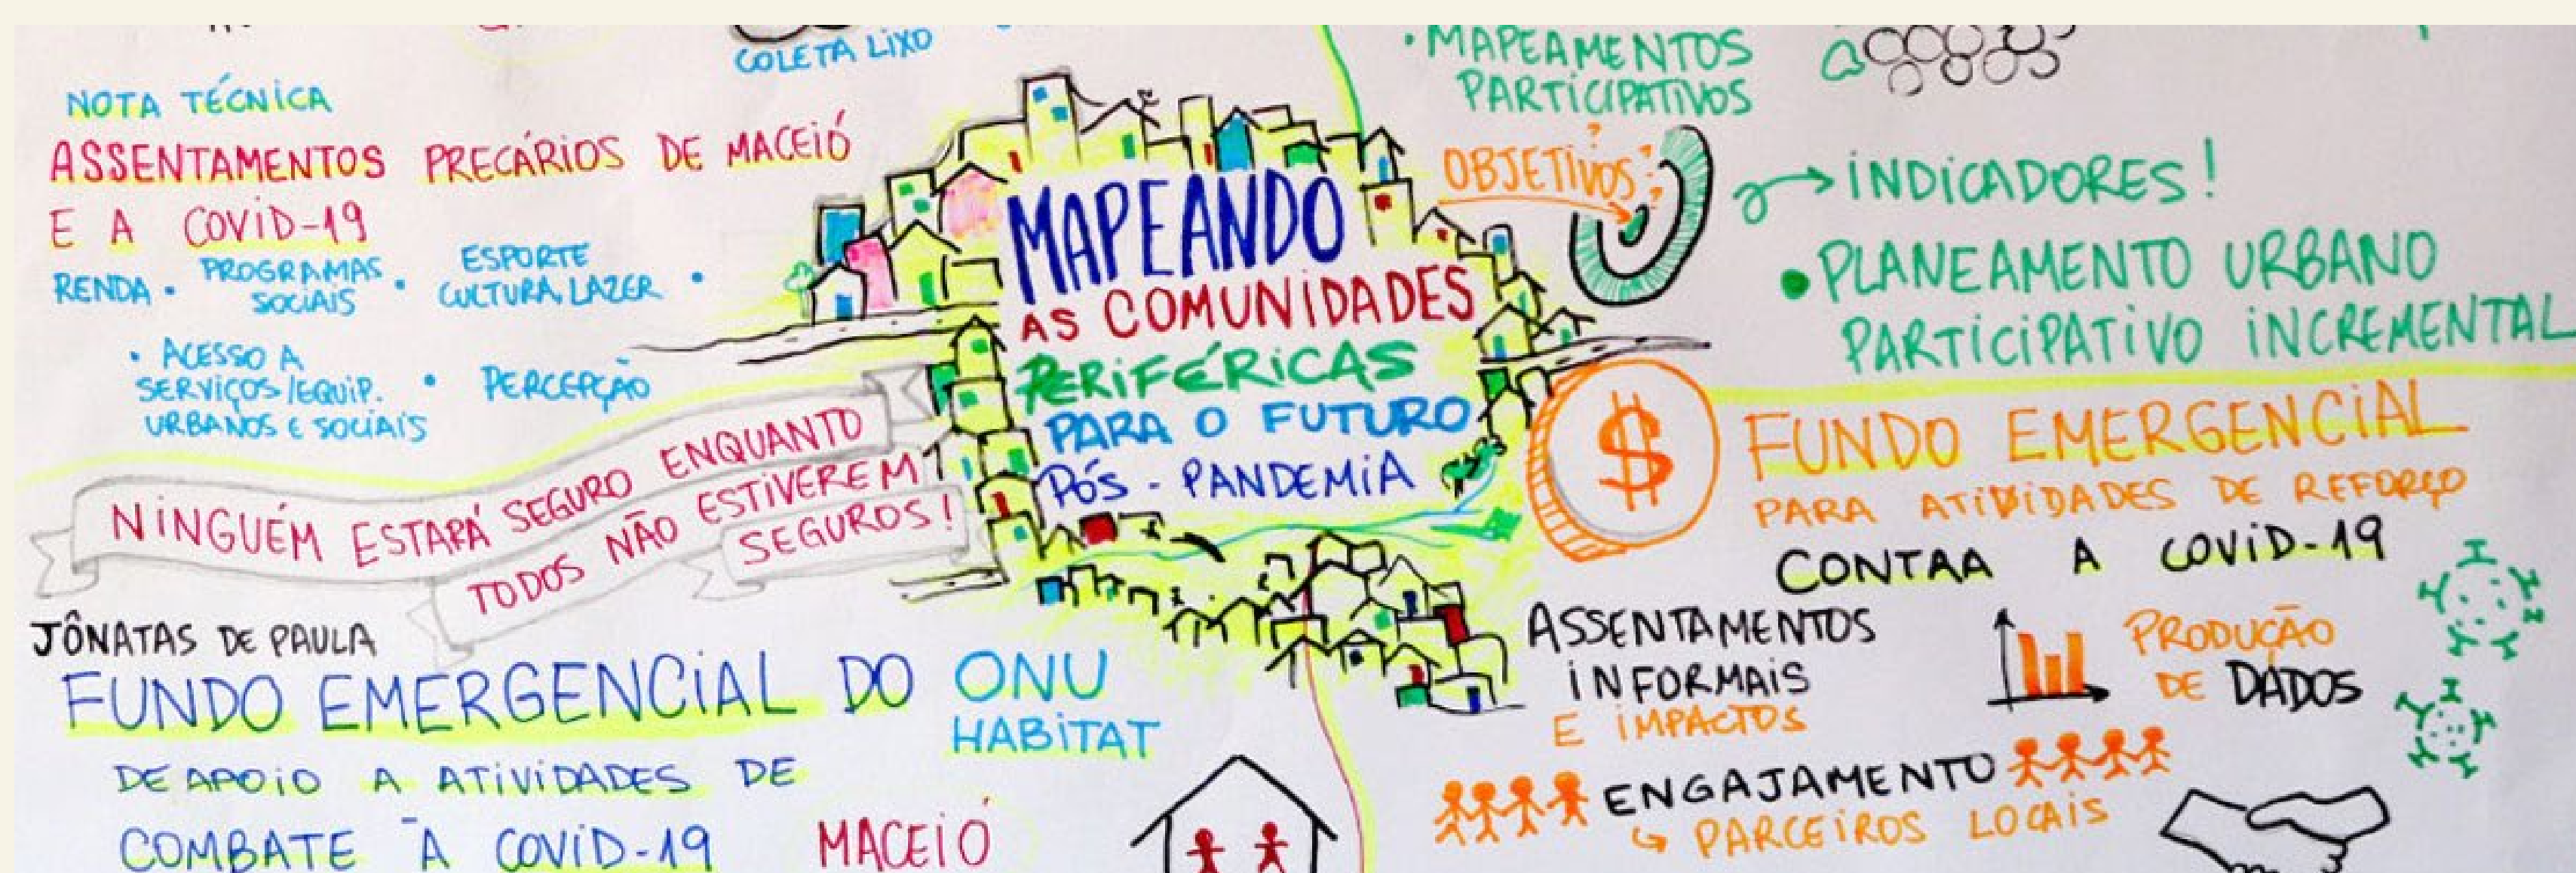 COLETA LIXO
NOTA TÉCNICA
ASSENTAMENTOS PRECÁRIOS DE MACEIÓ
E A COVID-19
RENDA • PROGRAMAS SOCIAIS • ESPORTE CULTURA, LAZER •
• ACESSO A
SERVIÇOS/EQUIP. • PERCEPÇÃO
URBANOS E SOCIAIS
NINGUÉM ESTARÁ SEGURO ENQUANTO
TODOS NÃO ESTIVEREM
SEGUROS!
JÔNATAS DE PAULA
FUNDO EMERGENCIAL DO ONU
HABITAT
DE APOIO A ATIVIDADES DE
COMBATE À COVID-19 MACEIÓ
MAPEANDO
AS COMUNIDADES
PERIFÉRICAS
PARA O FUTURO
PÓS-PANDEMIA
• MAPEAMENTOS
PARTICIPATIVOS
OBJETIVOS
INDICADORES!
• PLANEAMENTO URBANO
PARTICIPATIVO INCREMENTAL
$
FUNDO EMERGENCIAL
PARA ATIVIDADES DE REFORÇO
CONTRA A COVID-19
ASSENTAMENTOS
INFORMAIS
E IMPACTOS
PRODUÇÃO
DE DADOS
ENGAJAMENTO
PARCEIROS LOCAIS